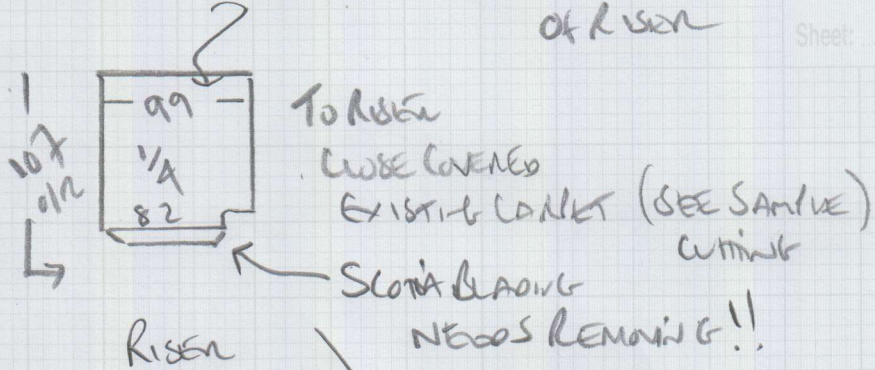 OF RISER
Sheet:
99
TO RISER
CLOSE COVERED
1/4
107
O/R
EXISTING CARPET (SEE SAMPLE)
82
CUTTING
SCOTIA BEADING
NEEDS REMOVING!!
RISER